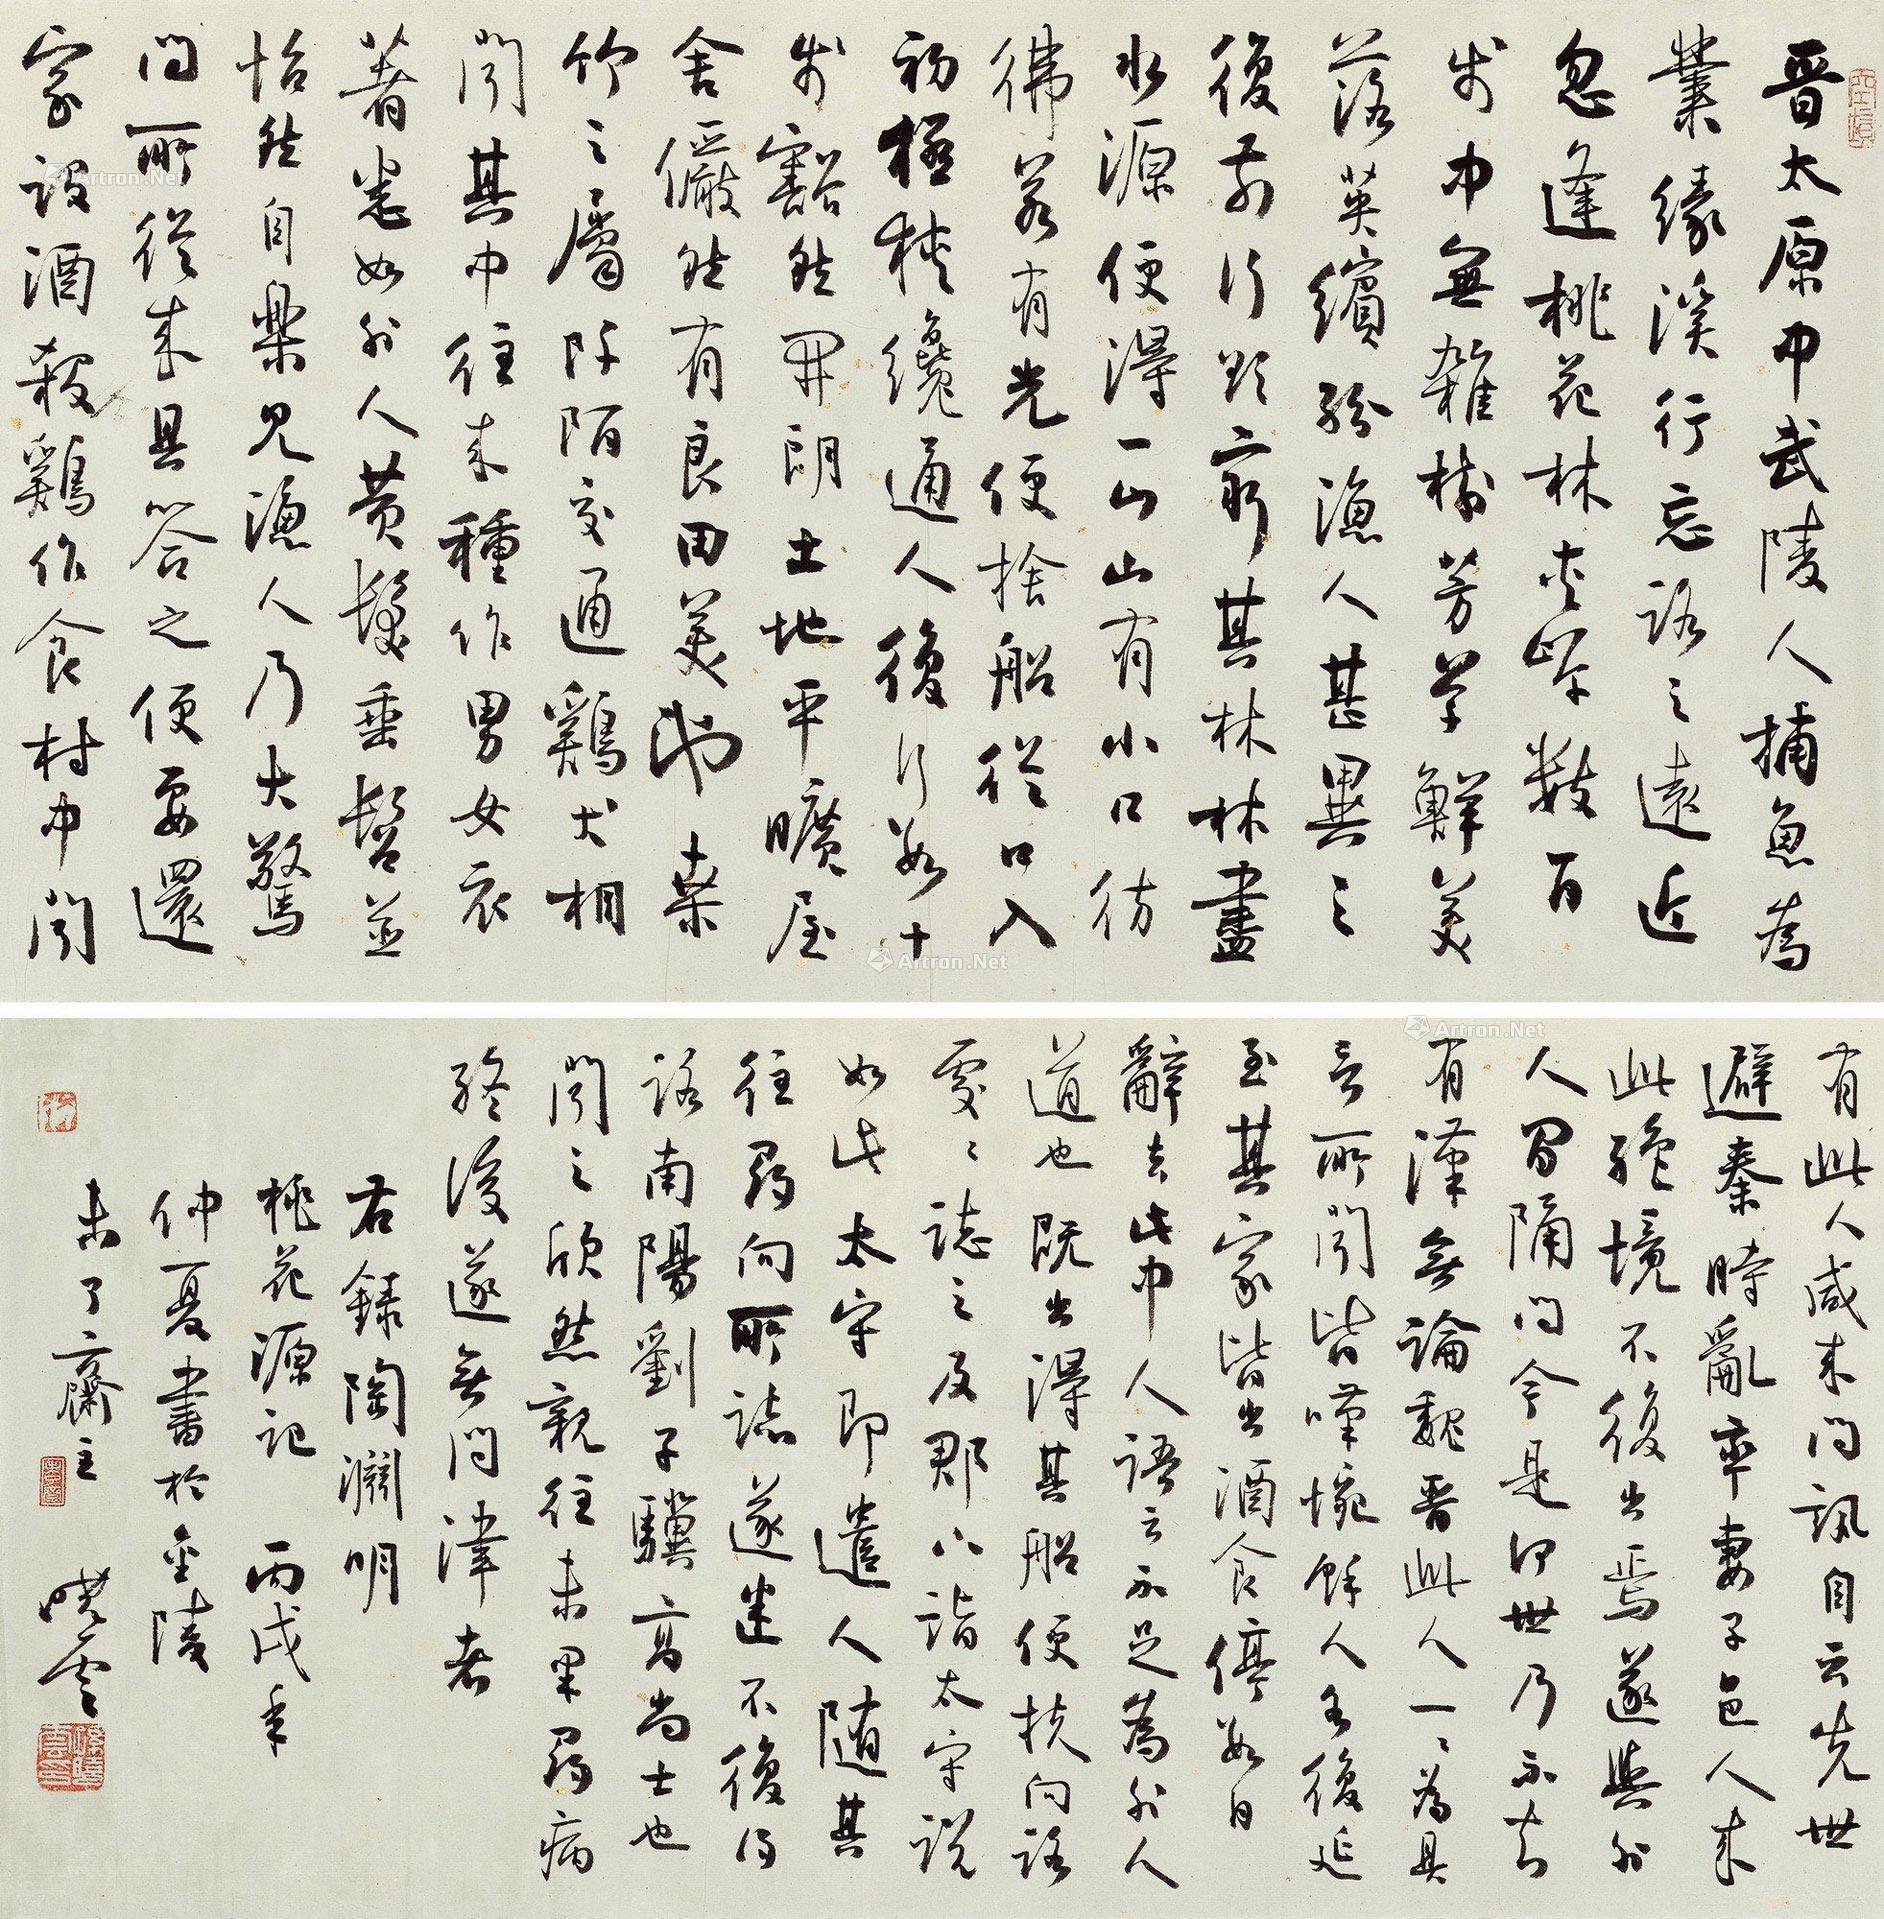 晋太原中武陵人捕魚為
業緣溪行忘路之遠近
忽逢桃花林夾岸數百
步中無雜樹芳草鮮美
落英繽紛漁人甚異之
復前行欲窮其林林盡
水源便得一山山有小口彷
彿若有光便捨船從口入
初極狹纔通人復行數十
步豁然開朗土地平曠屋
舍儼然有良田美池桑
竹之屬阡陌交通鷄犬相
聞其中往来種作男女衣
著悉如外人黃髮垂髫並
怡然自樂見漁人乃大驚
問所從来具答之便要還
家設酒殺鷄作食村中聞
有此人咸来問訊自云先世
避秦時亂率妻子邑人来
此絕境不復出焉遂與外
人間隔問今是何世乃不知
有漢無論魏晋此人一一為具
言所聞皆嘆惋餘人各復延
至其家皆出酒食停數日
辭去此中人語云不足為外人
道也既出得其船便扶向路
處處誌之及郡下詣太守說
如此太守即遣人随其
往尋向所誌遂迷不復得
路南陽劉子驥高尚士也
聞之欣然親往未果尋病
終後遂無問津者
右録陶淵明
桃花源記 丙戌年
仲夏書於金陵
未了齋主 曉雲
Artron.Net
Artron.Net
Artron.Net